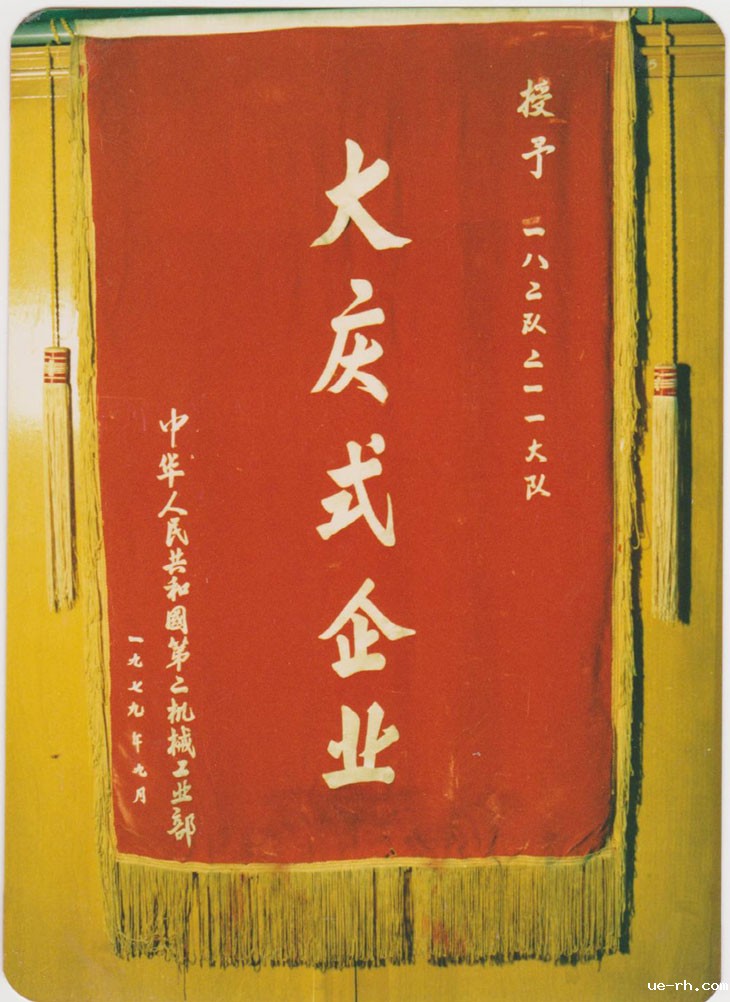 授予 一八二队二一一大队
大庆式企业
中华人民共和國第二机械工业部
一九七九年九月
ue-rh.com